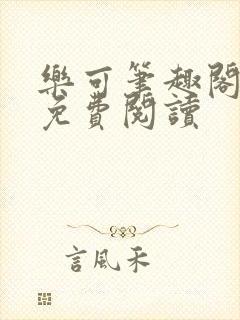 樂可筆趣閣
免費閱讀
言風禾